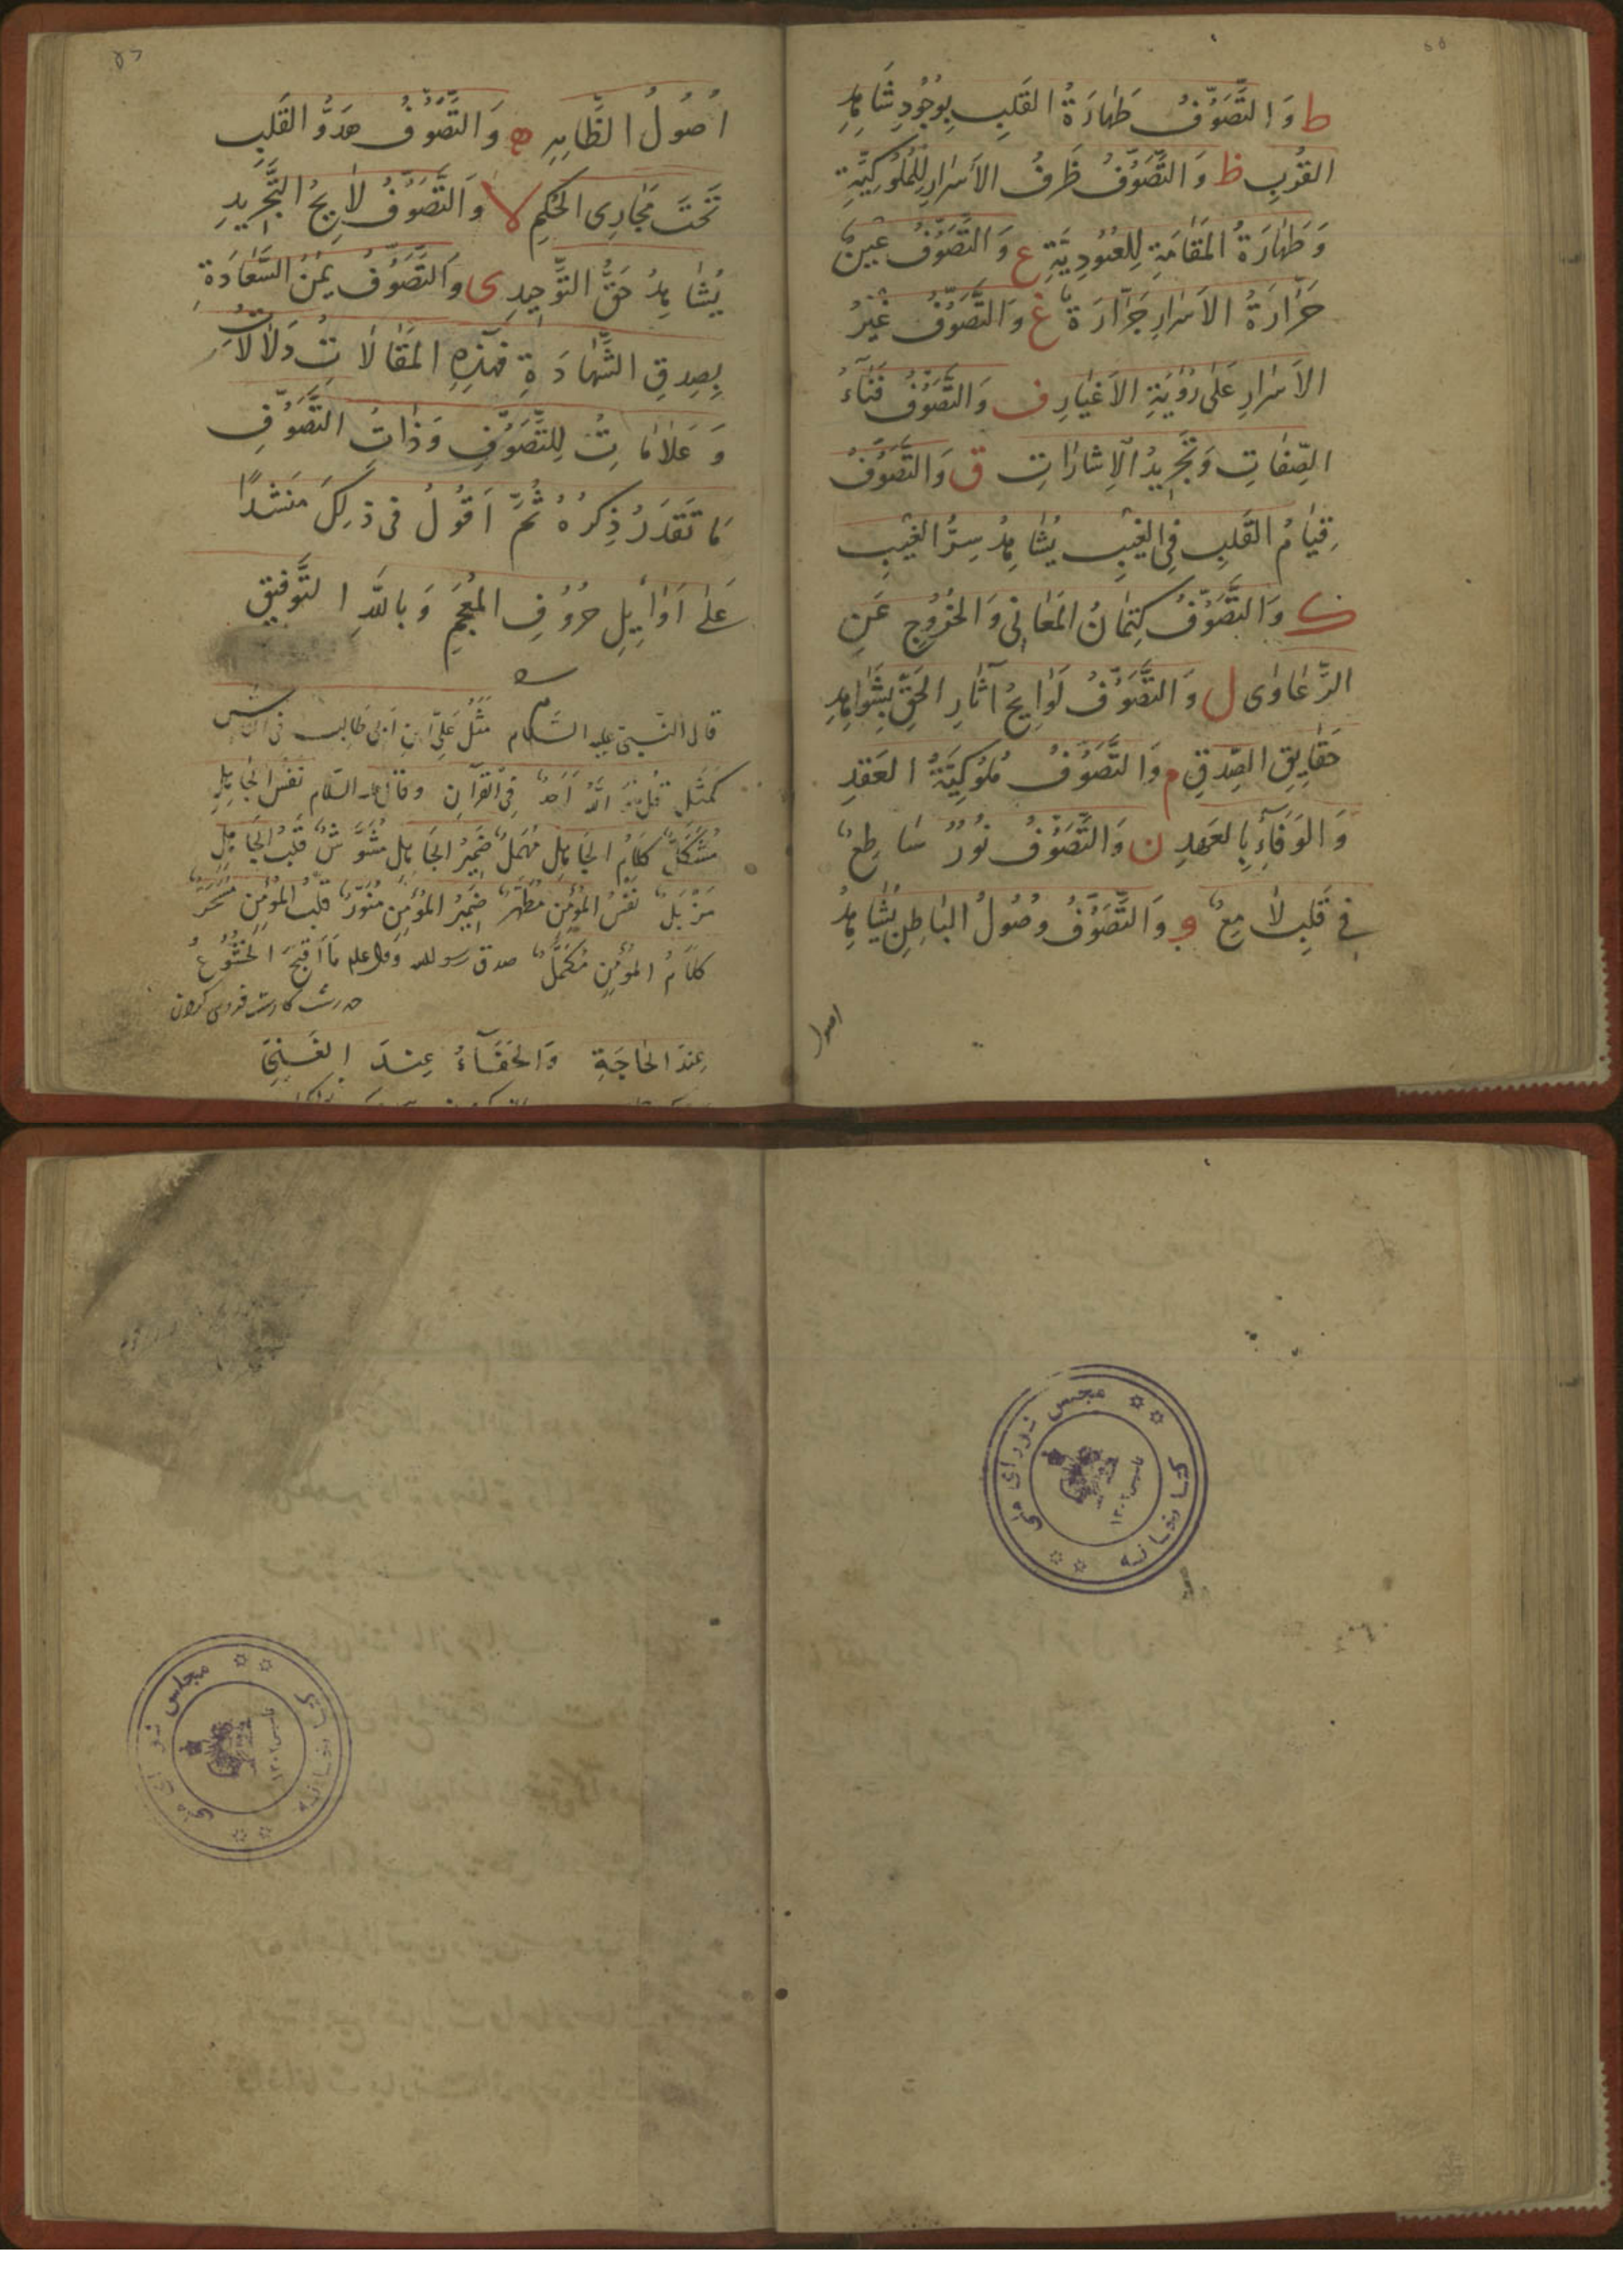 ط وَالتَّصَوُّفُ طَهَارَةُ القَلبِ بِوُجُودِ شَاهِدِ
القُربِ ظ وَالتَّصَوُّفُ ظَرفُ الأَسرَارِ لِلمُلُوكِيَّةِ
وَطَهَارَةُ المَقَامَةِ لِلعُبُودِيَّةِ ع وَالتَّصَوُّفُ عَينٌ
حَرَّارَةُ الأَسرَارِ جَرَّارَةٌ غ وَالتَّصَوُّفُ غَيرُ
الأَسرَارِ عَلٰى رُؤيَةِ الأَغيَارِ ف وَالتَّصَوُّفُ فَنَاءُ
الصِّفَاتِ وَتَجرِيدُ الإِشَارَاتِ ق وَالتَّصَوُّفُ
قِيَامُ القَلبِ فِي الغَيبِ يُشَاهِدُ سِرُّ الغَيبِ
ك وَالتَّصَوُّفُ كِتمَانُ المَعَانِي وَالخُرُوجِ عَنِ
الدَّعَاوٰى ل وَالتَّصَوُّفُ لَوَايِحُ آثَارِ الحَقِّ بِشَوَاهِدِ
حَقَايِقِ الصِّدقِ م وَالتَّصَوُّفُ مُلُوكِيَّةُ العَقدِ
وَالوَفَآءِ بِالعَهدِ ن وَالتَّصَوُّفُ نُورٌ سَاطِعٌ
فِي قَلبٍ لَامِعٍ و وَالتَّصَوُّفُ وُصُولُ البَاطِنِ يُشَاهِدُ
اصول
اُصُولُ الظَّاهِرِ ه وَالتَّصَوُّفُ هَدوُّ القَلبِ
تَحتَ مَجَارِى الحُكمِ لا وَالتَّصَوُّفُ لَايِحُ التَّجرِيدِ
يُشَاهِدُ حَقُّ التَّوحِيدِ ى وَالتَّصَوُّفُ يُمنُ السَّعَادَةِ
بِصِدقِ الشَّهَادَةِ فَهٰذِهِ المَقَالَاتُ دَلَالَاتٌ
وَعَلَامَاتٌ لِلتَّصَوُّفِ وَذَاتُ التَّصَوُّفِ
مَا تَقَدَرُ ذِكرُهُ ثُمَّ اَقُولُ فى ذٰلِكَ مُنشِدًا
عَلٰى اَوَايِلِ حُرُوفِ المُعجَمِ وَبِاللّٰهِ التَّوفِيق
قال النّبىّ عليه السّلام مَثَلُ عَلِيّ ابنِ اَبى طَالِب فى النّاس
كَمَثَلِ قُل هُوَ اللّٰهُ اَحَدٌ فى القرآنِ وقال عليه السّلام نَفسُ الجَاهِلِ
مُشكَلٌ كَلَامُ الجَاهِلِ مُهمَلٌ ضَمِيرُ الجَاهِلِ مُشَوَّشٌ قَلبُ الجَاهِلِ
مَزبَلٌ نَفسُ المُؤمِنِ مُطَهَّرٌ ضَمِيرُ المُؤمِنِ مُنَوَّرٌ قَلبُ المُؤمِنِ
كَلَامُ المُؤمِنِ مُكَمَّلٌ صدق رسول الله وقال علم مَا اَقبَحَ الخُشُوعُ
عِندَ الحَاجَةِ وَالجَفَآءُ عِندَ الغِنَى
کتابخانه مجلس شورای ملی
تاسیس ۱۳۰۲
کتابخانه مجلس شورای ملی
تاسیس ۱۳۰۲